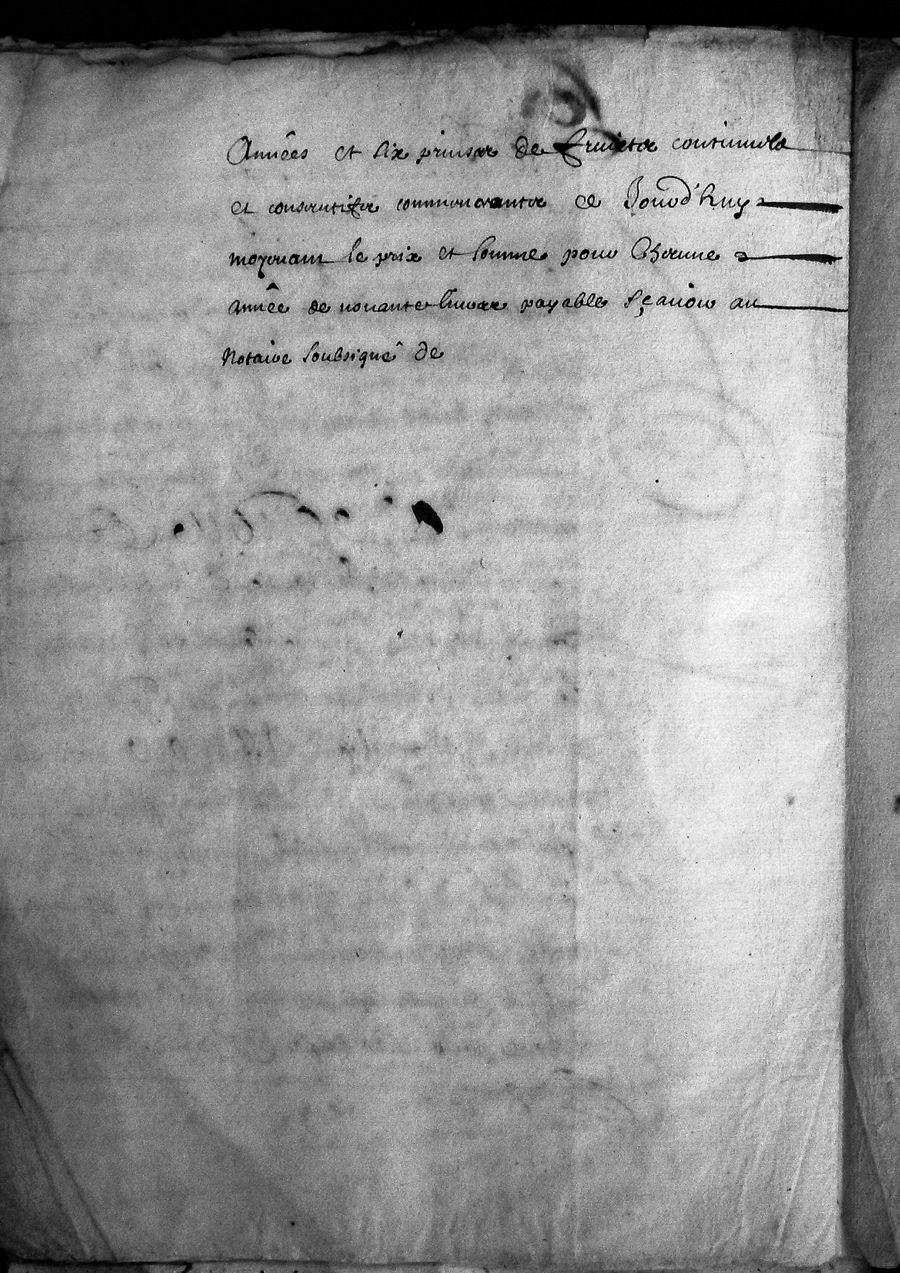 Années et six prinses de fruicts continuels
et consecutifes commencantes ce Jourd'huy
moyenant le prix et somme pour Chacune
année de nonante livres payable Sçavoir au
Notaire soubsigné de